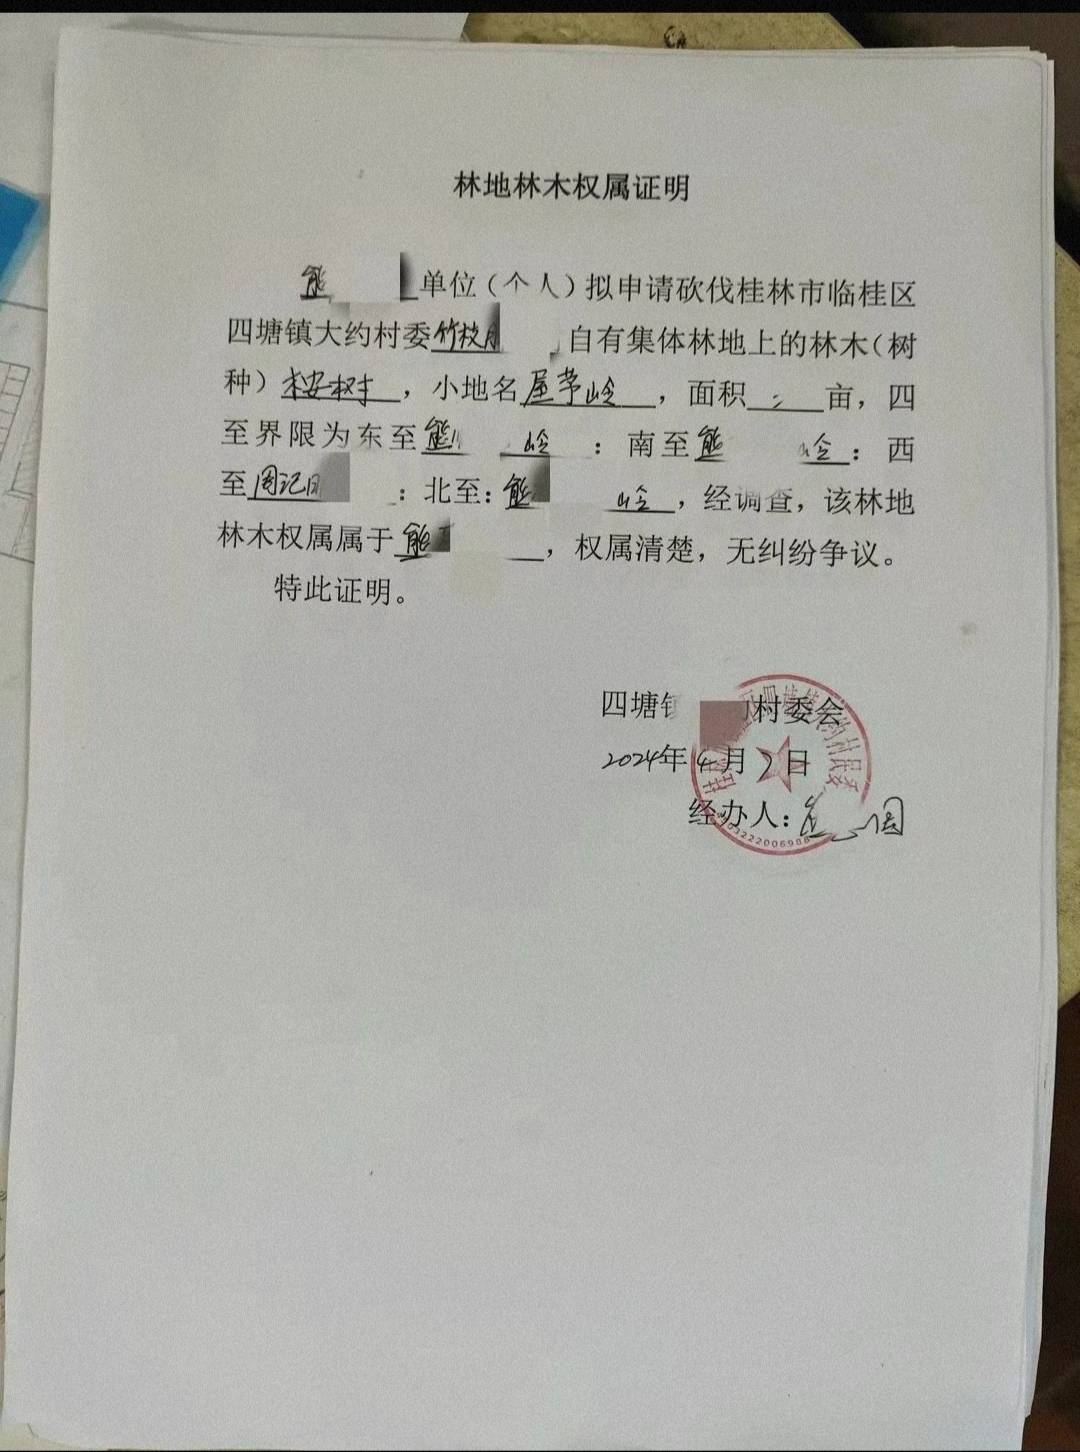 林地林木权属证明
熊 单位（个人）拟申请砍伐桂林市临桂区
四塘镇大约村委竹枝 自有集体林地上的林木（树
种）桉树，小地名屋茅岭，面积 亩，四
至界限为东至熊 岭：南至熊 岭：西
至周记 ：北至：熊 岭，经调查，该林地
林木权属属于熊 ，权属清楚，无纠纷争议。
特此证明。
四塘镇 村委会
2024年4月7日
经办人： 周